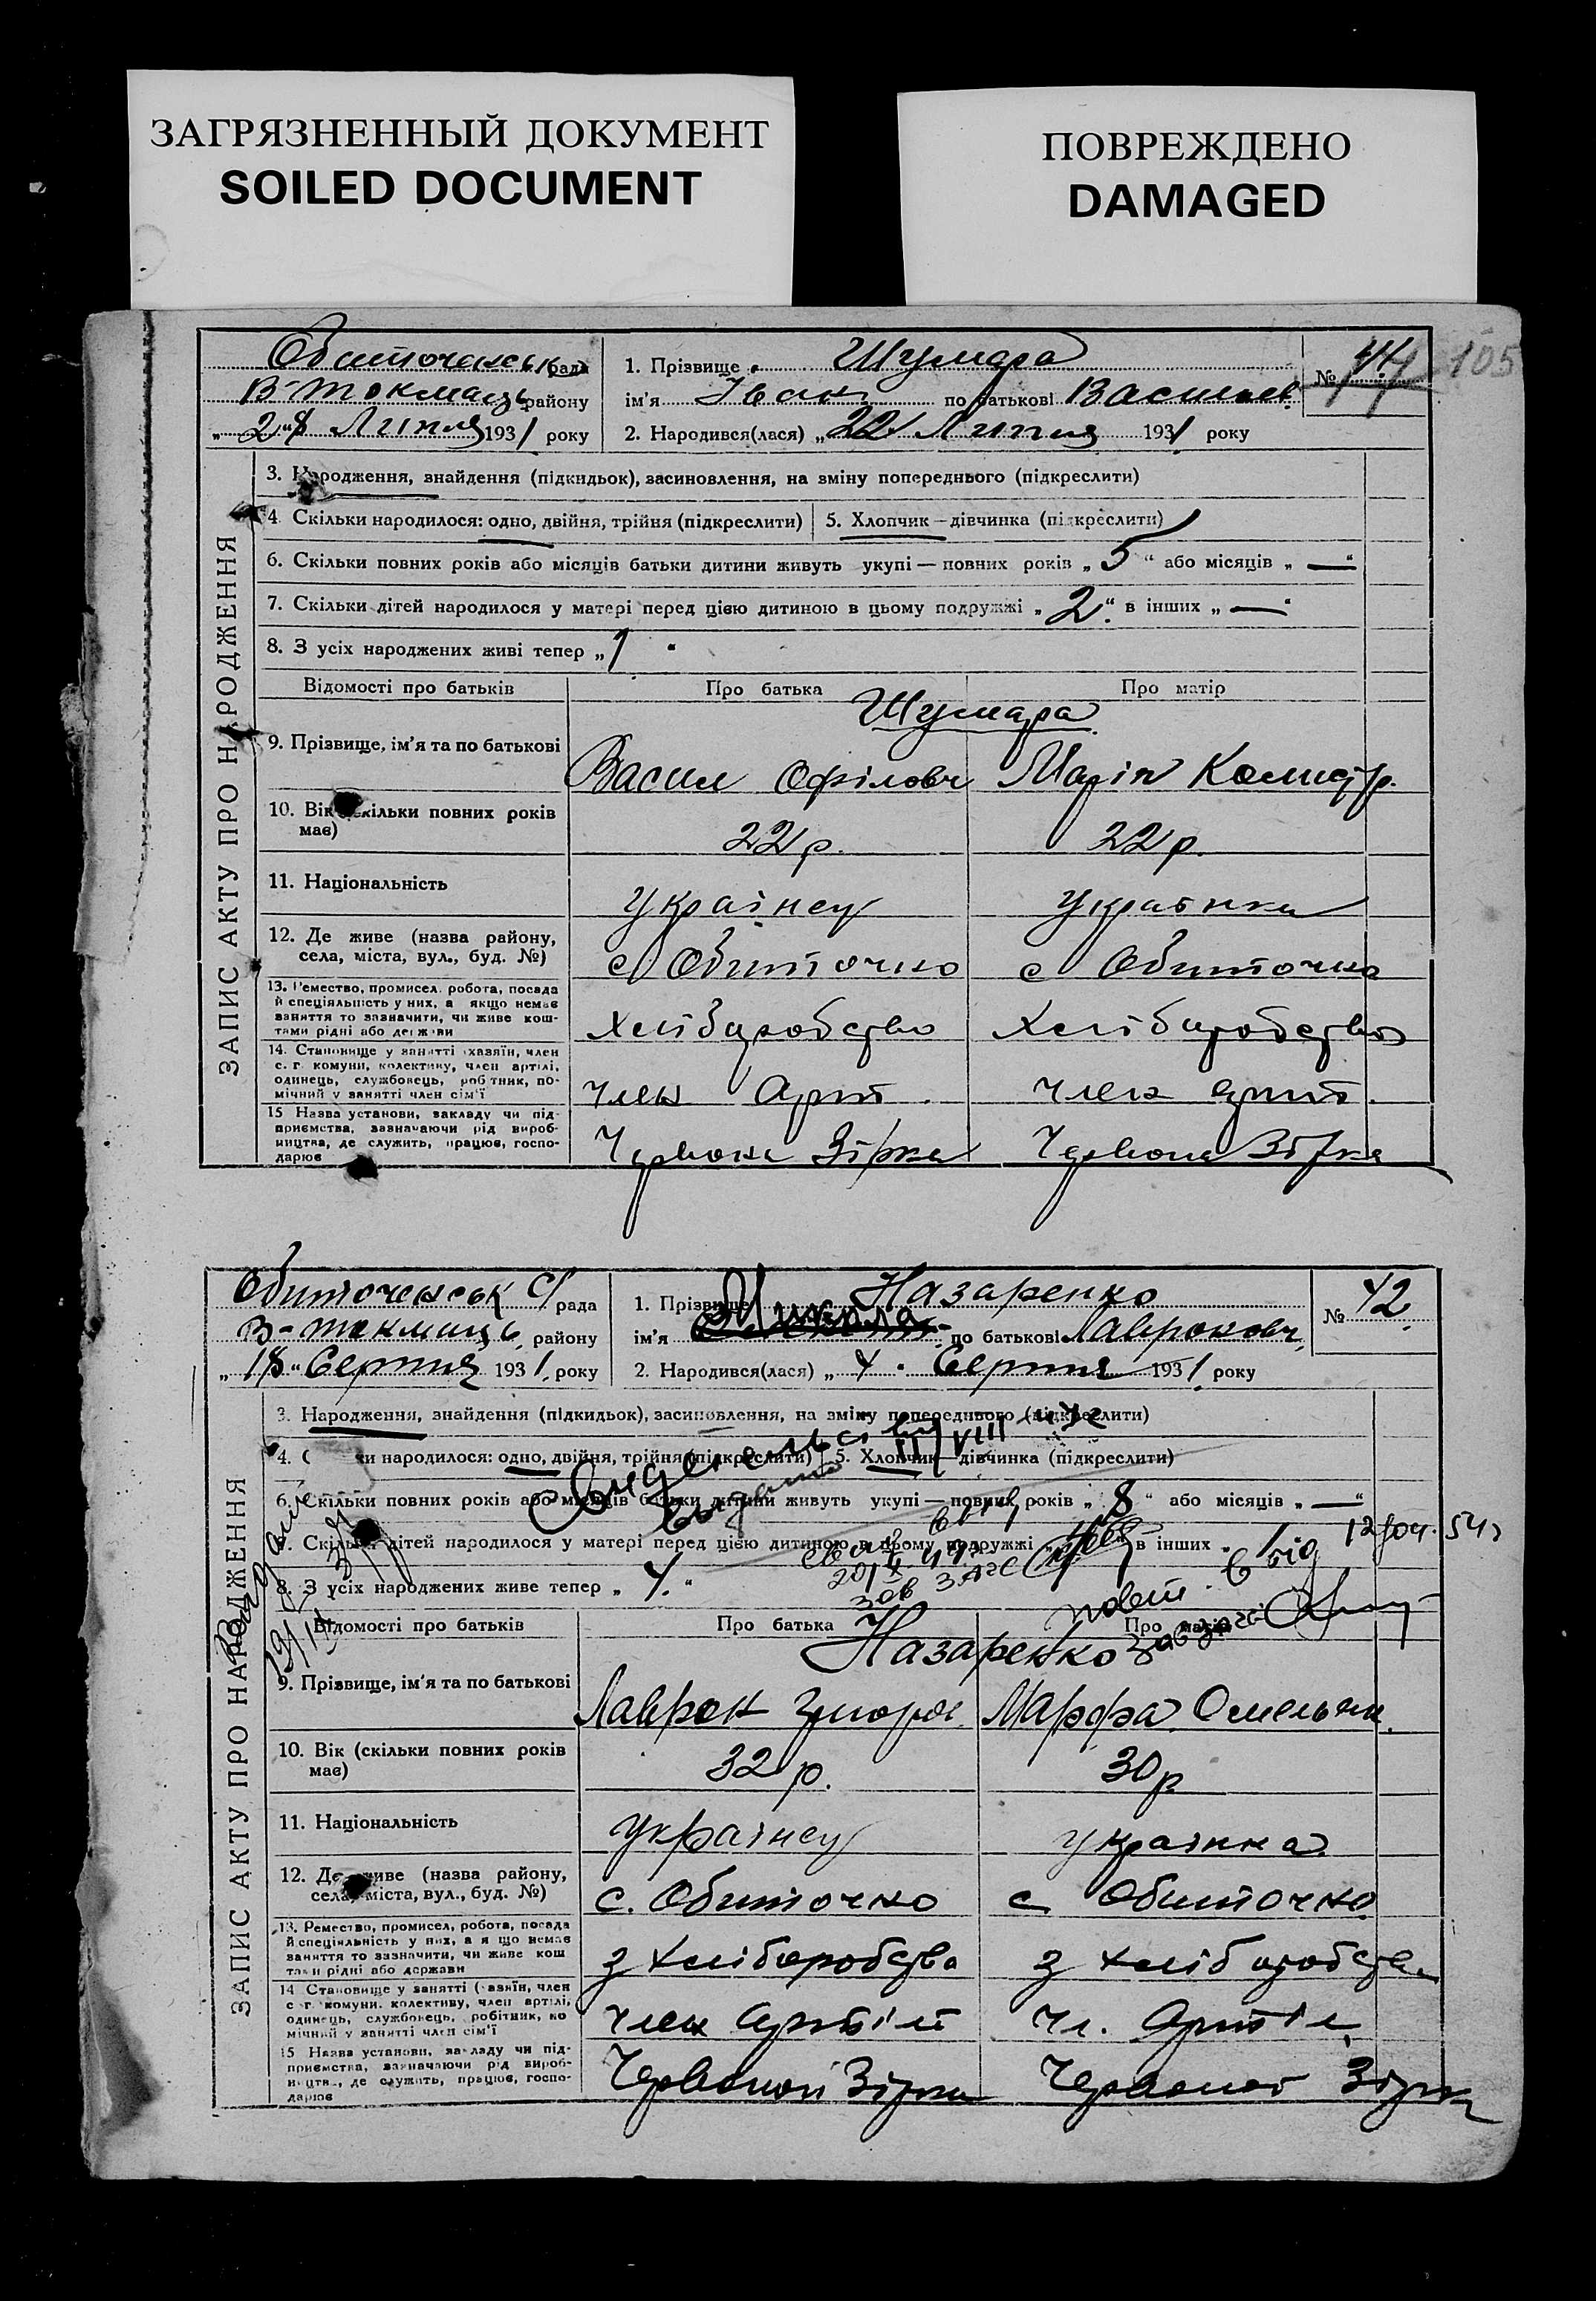 ЗАГРЯЗНЕННЫЙ ДОКУМЕНТ
SOILED DOCUMENT
ПОВРЕЖДЕНО
DAMAGED
105
ЗАПИС АКТУ ПРО НАРОДЖЕННЯ
Обиточенськ рада
В-Токмаць району
„28" Липня 1931 року
1. Прізвище Шумара
ім'я Іван по батькові Васильев.
2. Народився(лася) „22" Липня 1931 року
№
3. Народження, знайдення (підкидьок), засиновлення, на зміну попереднього (підкреслити)
4. Скільки народилося: одно, двійня, трійня (підкреслити)
5. Хлопчик – дівчинка (підкреслити)
6. Скільки повних років або місяців батьки дитини живуть укупі — повних років „5" або місяців „—"
7. Скільки дітей народилося у матері перед цією дитиною в цьому подружжі „2" в інших „—"
8. З усіх народжених живі тепер „1"
Відомості про батьків Про батька Про матір
Шумара
9. Прізвище, ім'я та по батькові
Васил Офілович Марія
10. Вік (скільки повних років має)
22 р. 22 р.
11. Національність
українец українка
12. Де живе (назва району, села, міста, вул., буд. №)
с Обиточно с Обиточно
13. Ремество, промисел, робота, посада
й спеціяльність у них, а якщо немає
заняття то зазначити, чи живе кош-
тами рідні або держави
Хліборобство Хліборобство
14. Становище у занятті (хазяїн, член
с. г. комуни, колективу, член артілі,
одинець, службовець, робітник, по-
мічний у занятті член сім'ї
член Арт. член арт.
15 Назва установи, закладу чи під-
приємства, зазначаючи рід вироб-
ництва, де служить, працює, госпо-
дарює
Червона Зірка Червона Зірка
ЗАПИС АКТУ ПРО НАРОДЖЕННЯ
Обиточенськ с/рада
В-Токмаць району
„18" Серпня 1931 року
1. Прізвище Назаренко
ім'я Микола по батькові Лаврокович
2. Народився(лася) „4" Серпня 1931 року
№ 42
3. Народження, знайдення (підкидьок), засиновлення, на зміну попереднього (підкреслити)
4. Скільки народилося: одно, двійня, трійня (підкреслити)
5. Хлопчик – дівчинка (підкреслити)
6. Скільки повних років або місяців батьки дитини живуть укупі — повних років „8" або місяців „—"
7. Скільки дітей народилося у матері перед цією дитиною в цьому подружжі в інших
8. З усіх народжених живе тепер „4"
Відомості про батьків Про батька Про матір
Назаренко
9. Прізвище, ім'я та по батькові
Лаврок Марфа Омельян.
10. Вік (скільки повних років має)
32 р. 30 р
11. Національність
українец українка
12. Де живе (назва району, села, міста, вул., буд. №)
с. Обиточно с Обиточно
13. Ремество, промисел, робота, посада
й спеціяльність у них, а якщо немає
заняття то зазначити, чи живе кош
тами рідні або держави
з хліборобства з хліборобства
14 Становище у занятті (хазяїн, член
с г комуни, колективу, член артілі,
одинець, службовець, робітник, по
мічний у занятті член сім'ї
член Артіл Чл. Артіл
15 Назва установи, закладу чи під-
приємства, зазначаючи рід вироб-
ництва, де служить, працює, госпо-
дарює
Червоної Зірки Червоної Зірки